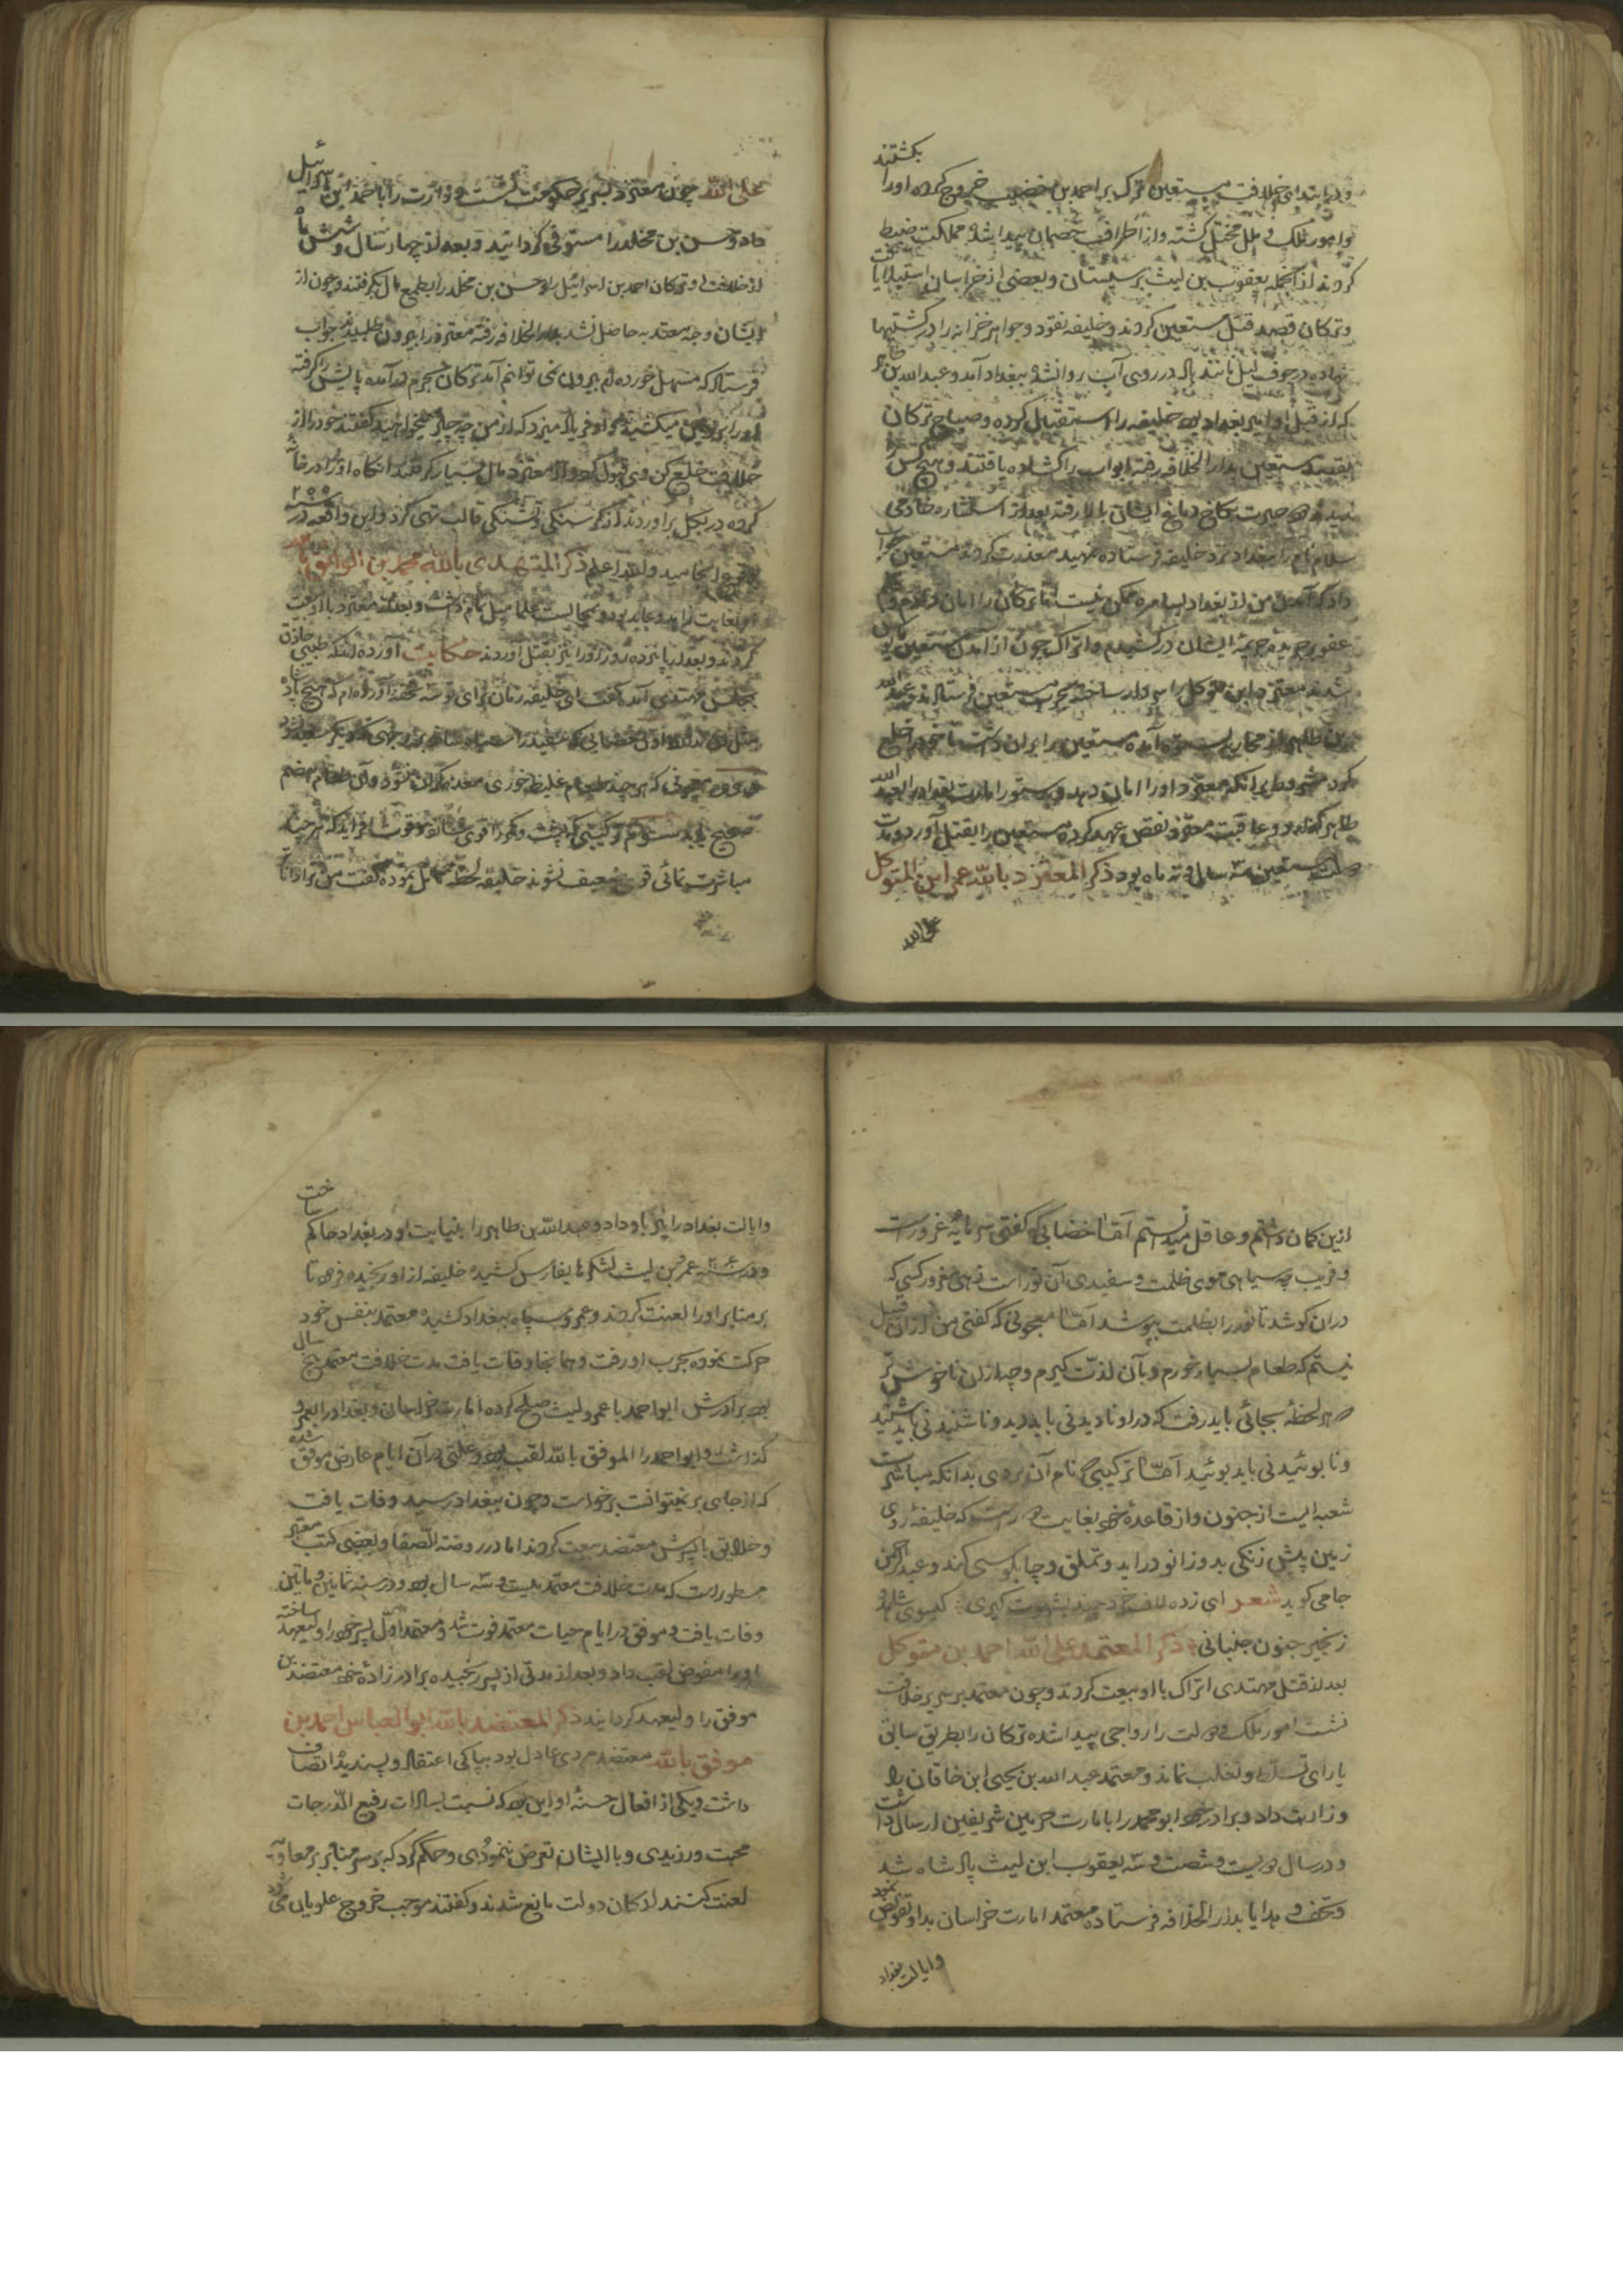 و در ابتدای خلافت مستعین ترک بر احمد بن خضیب خروج کرده او را بکشتند
و امور ملک و ملل مختل گشته و از اطراف خصمان پیدا شده مملکت ضبط
کردند از آنجمله یعقوب بن لیث بر سیستان و بعضی از خراسان استیلا یافت
و ترکان قصد قتل مستعین کردند و خلیفه نقود و جواهر خزانه را در کشتیها
نهاده در جوف لیل مانند باد در روی آب روان شده ببغداد آمد و عبدالله بن طاهر
که از قبل او امیر بغداد بود خلیفه را استقبال کرده و صباح ترکان
بقصد مستعین بدار الخلافه رفته ابواب را گشاده یافتند و هیچ کس را
ندیده دود حیرت بکاخ دماغ ایشان بالا رفته بعد از استشاره خادمی
سلام نام را ببغداد نزد خلیفه فرستاده تمهید معذرت کردند مستعین جواب
داد که آمدن من از بغداد بسامره ممکن نیست اما ترکان را امان دادم و
عفو بر جریده جریمهٔ ایشان درکشیدم و اتراک چون از آمدن مستعین مایوس
شدند معتز ابن متوکل را سردار ساخته بحرب مستعین فرستادند و عبدالله
بن طاهر از محاربه بستوه آمده مستعین را بران داشت تا خود را خلع
کرد مشروط برانکه معتز او را امان دهد و بدستور امارت بغداد را بعبدالله
طاهر گذارد و عاقبت معتز نقض عهد کرده مستعین را بقتل آورد و مدت
مستعین سه سال و نه ماه بود ذکر المعتز بالله عمر ابن المتوکل
علی الله
علی الله چون معتز بسریر حکومت نشست وزارت را باحمد بن اسرائیل
داد و حسن بن مخلد را مستوفی گردانید و بعد از چهار سال و شش ماه
از خلافت او ترکان احمد بن اسرائیل را و حسن بن مخلد را بطمع مال بگرفتند و چون از
ایشان وجه معتد به حاصل نشد بدار الخلافه رفته معتز را بیرون طلبیدند جواب
فرستاد که مسهل خورده ام بیرون نمی توانم آمد ترکان بحرم درآمده پایش را گرفته
او را بر زمین میکشیدند و او فریاد میزد که از من چه چیز میخواهید گفتند خود را از
خلافت خلع کن وی قبول کرد و از معتز مال بسیار گرفتند آنگاه او را در خانه
کرده در بگل برآوردند از گرسنگی و تشنگی قالب تهی کرد و این واقعه در سنه ۲۵۵
بوقوع انجامید والله اعلم ذکر المهتدی بالله محمد بن الواثق بالله
او بغایت زاهد و عابد بود و بمجالست علما میل تمام داشت و بعد از معتز با او بیعت
کردند و بعد از پانزده روز او را نیز بقتل آوردند حکایت آورده اند که طبیبی حاذق
بمجلس مهتدی آمده گفت ای خلیفه زمان برای تو سه تحفه آورده ام که هیچ پادشاه
مثل آن ندارد اول خضابی که سفید را سیاه سازد بر وجهی که دیگر سفید نشود
دوم معجونی که هر چند طعام غلیظ خوری معده گران نشود و آن طعام هضم
صحیح یابد سوم ترکیبی که پشت و کمر را قوی سازد و قوت افزاید که هر چند
مباشرت نمائی قوی ضعیف نشوند خلیفه لحظه تامل نموده گفت من ترا دانا
ازین گمان داشتم و عاقل میدانستم اما خضابی که گفتی سرمایه غرور است
و فریب چه سیاهی موی ظلمت و سفیدی آن نور است زهی مغرور کسی که
دران کوشد تا نور را بظلمت بپوشد اما معجونی که گفتی من از آن قبیل
نیستم که طعام بسیار خورم و بآن لذت گیرم و چه از آن ناخوش تر
هر لحظه بجائی باید رفت که در او نادیدنی باید دید و ناشنیدنی باید شنید
و نا بوئیدنی باید بوئید اما ترکیبی که نام آن بردی بدانکه مباشرت
شعبه ایست از جنون و از قاعده خرد بغایت دور است که خلیفه روی
زمین پیش زنکی بدو زانو درآید و تملق و چابلوسی کند و عبدالرحمن
جامی گوید شعر ای زده لاف خرد چند بشهوت گیری گیسوی شاهد و
زنجیر جنون جنبانی ذکر المعتمد علی الله احمد بن متوکل
بعد از قتل مهتدی اتراک با او بیعت کردند و چون معتمد بر سریر خلافت
نشست امور ملک و دولت را رواجی پیدا شده ترکان را بطریق سابق
یارای تسلط و تغلب نماند و معتمد عبدالله بن یحیی ابن خاقان را
وزارت داد و برادر خود ابو محمد را بامارت حرمین شریفین ارسال داشت
و در سال دویست و شصت و سه یعقوب ابن لیث پادشاه شد
و تحف و هدایا بدار الخلافه فرستاده معتمد امارت خراسان بدو تفویض نمود
و ایالت بغداد
و ایالت بغداد را نیز باو داد و عبدالله بن طاهر را بنیابت او در بغداد حاکم ساخت
و در سنه عمرو بن لیث لشکر ها بفارس کشیده خلیفه از او رنجیده فرمود تا
بر منابر او را لعنت کردند و عمرو سپاه ببغداد کشیده معتمد بنفس خود
حرکت نموده بحرب او رفت و همانجا وفات یافت مدت خلافت معتمد پنج سال
بود برادرش ابو احمد با عمرو لیث صلح کرده امارت خراسان و بغداد را بعمرو
گذاشت و ابو احمد را الموفق بالله لقب بود و علتی در آن ایام عارض موفق شده
که از جای بر نمیتوانست برخواست و چون ببغداد رسید وفات یافت
و خلایق با پسرش معتضد بیعت کردند اما در روضة الصفا و بعضی کتب معتبر
مسطور است که مدت خلافت معتمد بیست و سه سال بود و در سنه ثمانین و ماتین
وفات یافت و موفق در ایام حیات معتمد فوت شد و معتمد اول پسر خود را ولیعهد ساخته
او را مفوض لقب داد و بعد از مدتی از پسر رنجیده برادر زادهٔ خود معتضد بن
موفق را ولیعهد گردانید ذکر المعتضد بالله ابو العباس احمد بن
موفق بالله معتضد مردی عادل بود بپاکی اعتقاد و پسندیده اتصاف
داشت و یکی از افعال حسنه او این بود که نسبت بسادات رفیع الدرجات
محبت ورزیدی و با ایشان تعرض ننمودی و حکم کرد که بر سر منابر بر معاویه
لعنت کنند ارکان دولت مانع شدند و گفتند موجب خروج علویان می شود